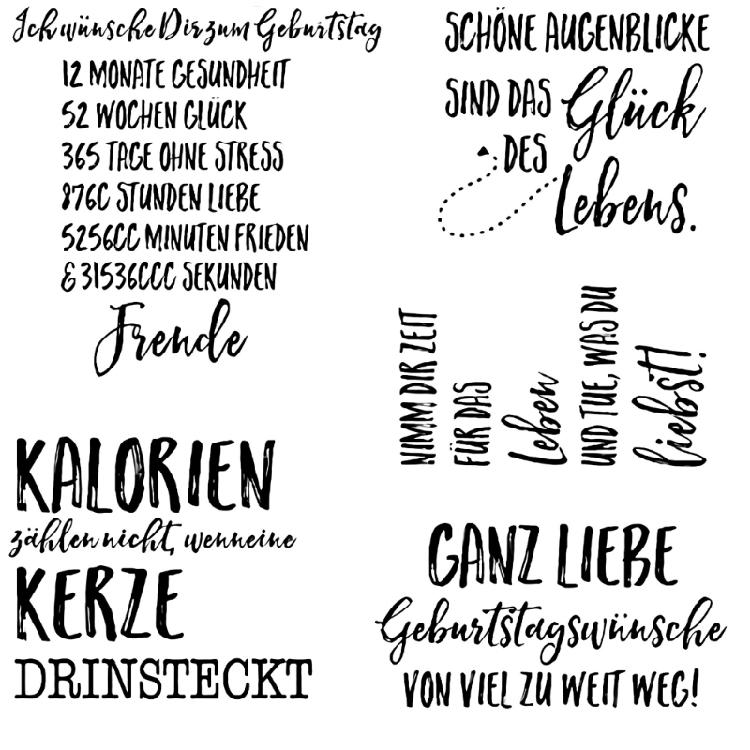 Ich wünsche Dir zum Geburtstag
12 MONATE GESUNDHEIT
52 WOCHEN GLÜCK
365 TAGE OHNE STRESS
876C STUNDEN LIEBE
5256CC MINUTEN FRIEDEN
& 31536CCC SEKUNDEN
Freude
SCHÖNE AUGENBLICKE
SIND DAS Glück
DES
Lebens.
NIMM DIR ZEIT
FÜR DAS
Leben
UND TUE, WAS DU
liebst!
KALORIEN
zählen nicht, wenn eine
KERZE
DRINSTECKT
GANZ LIEBE
Geburtstagswünsche
VON VIEL ZU WEIT WEG!